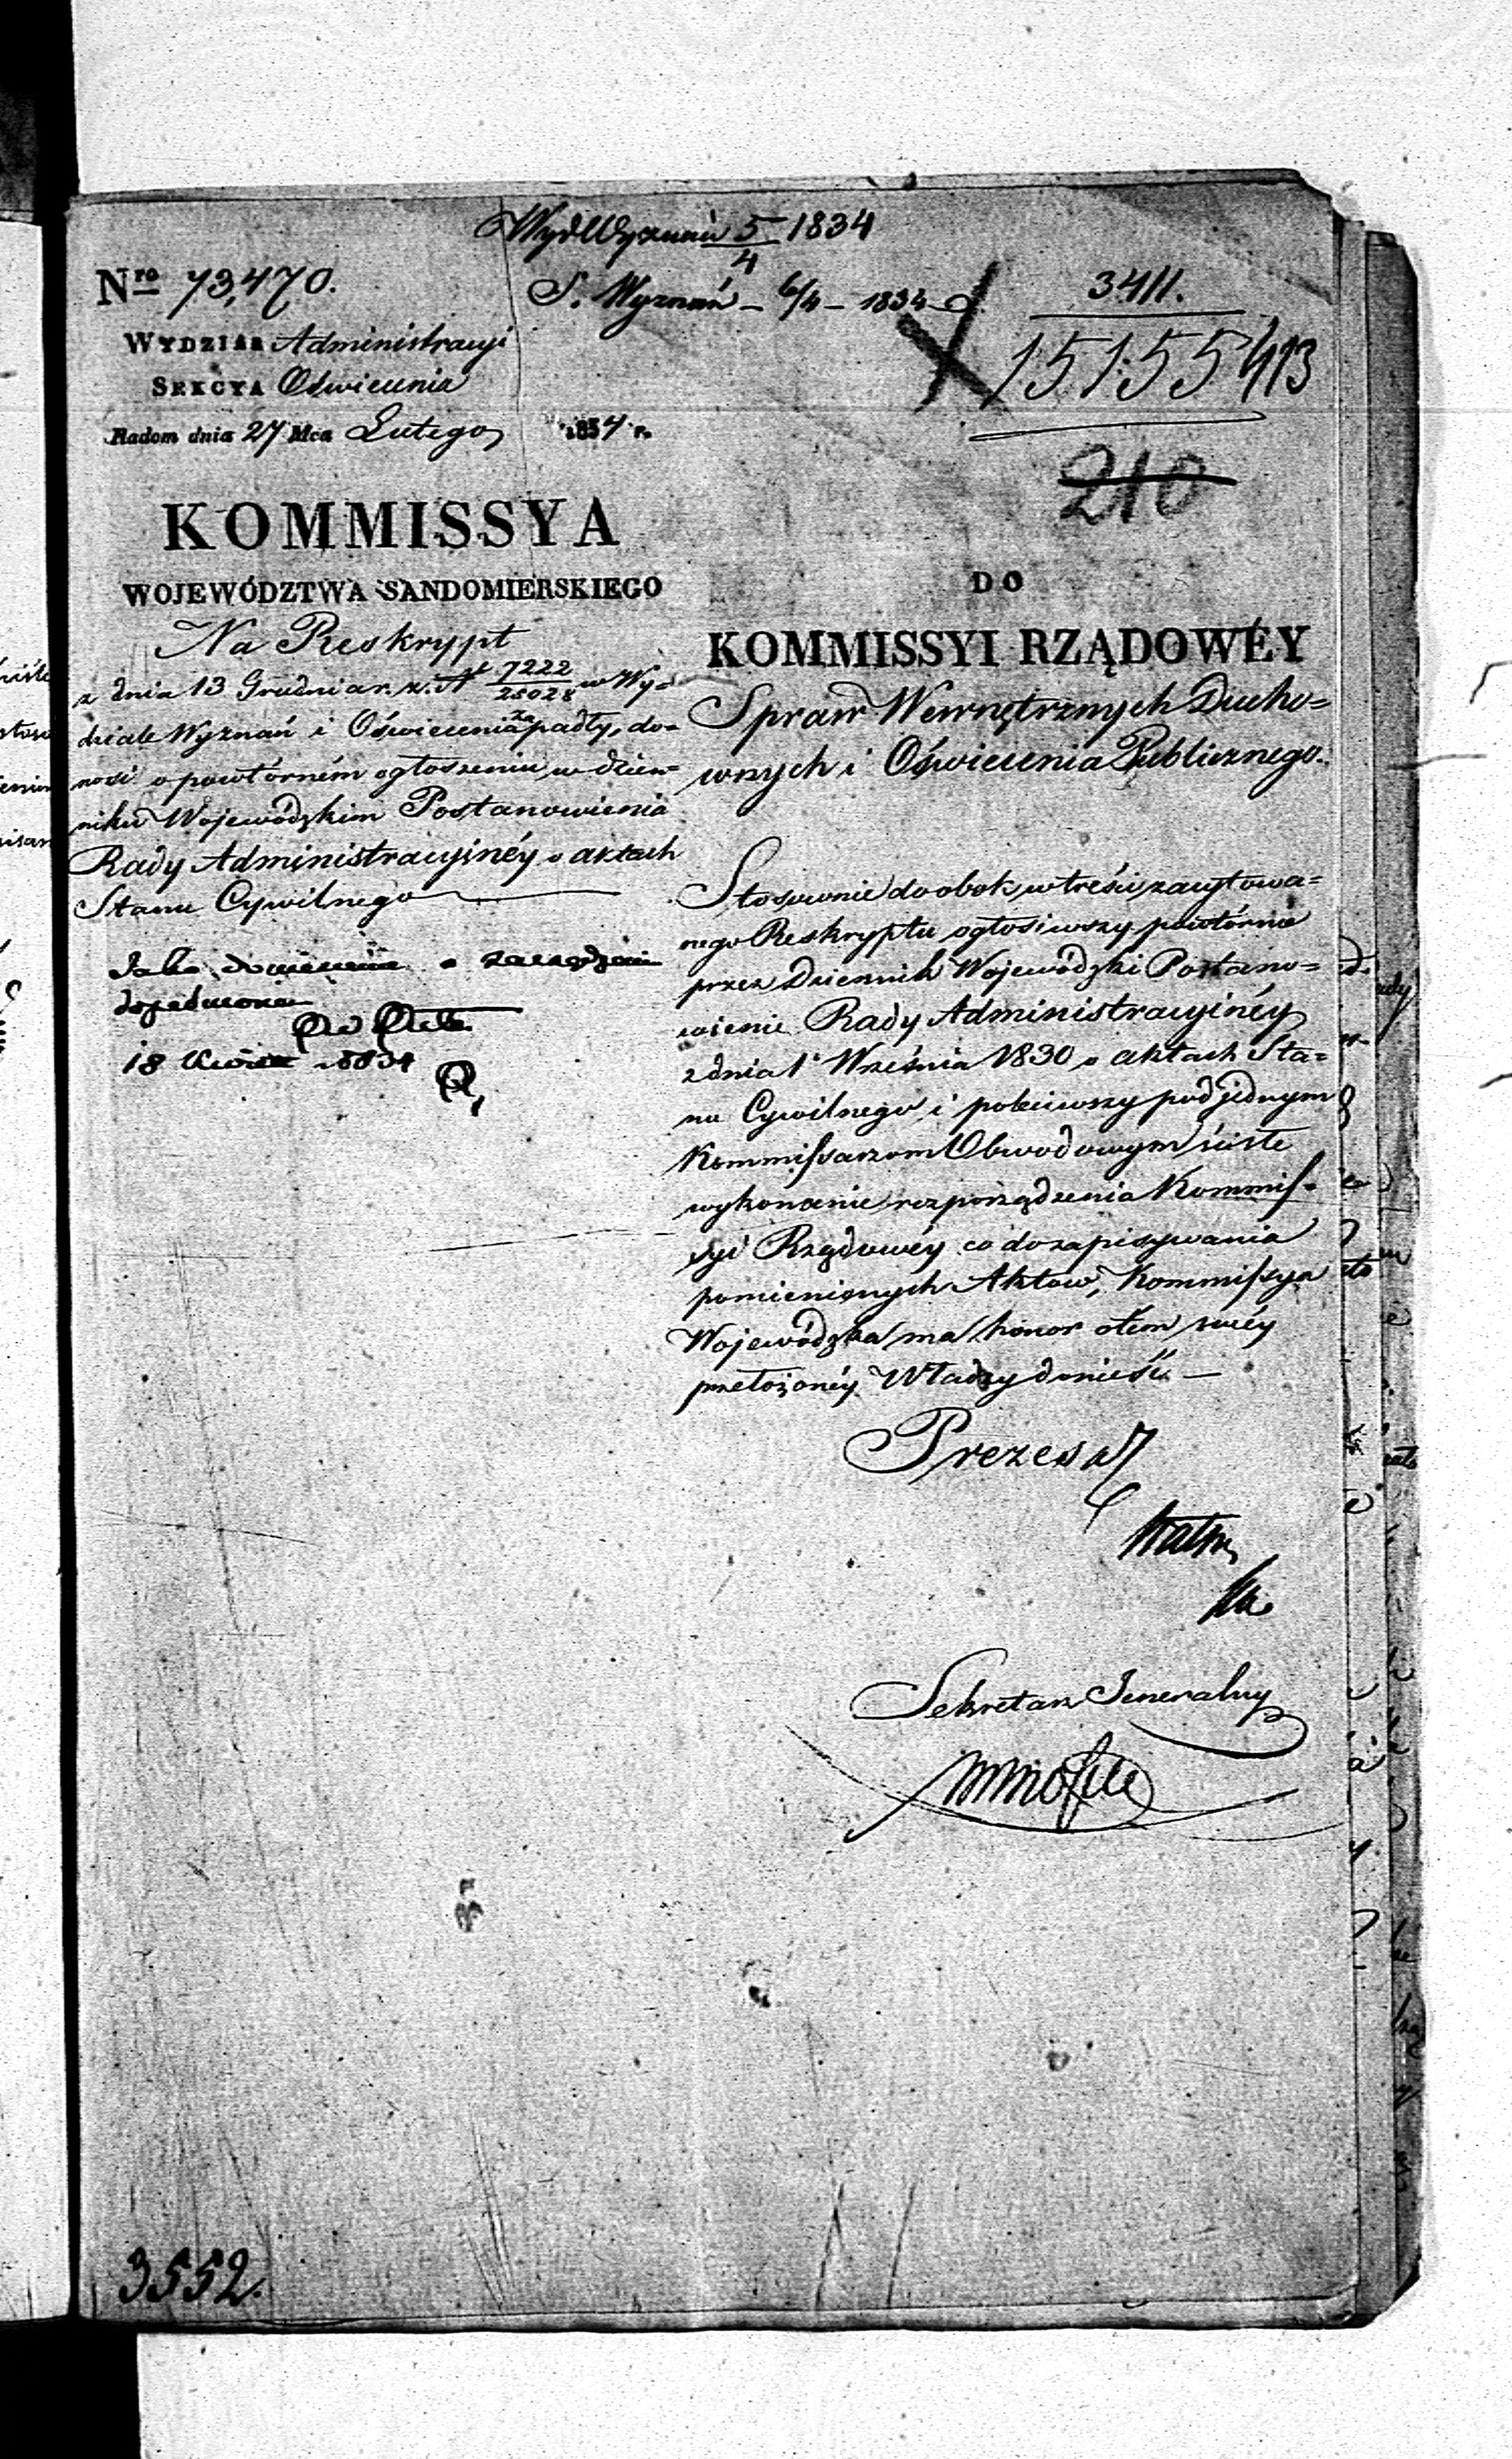 WydWyznań 5/4 1834
Nro 73,470.
S. Wyznań – 6/4 – 1834
3411.
15155 413
210
WYDZIAŁ Administracyi
SEKCYA Oświecenia
Radom dnia 27 Mca Lutego 1834 r.
KOMMISSYA
WOJEWÓDZTWA SANDOMIERSKIEGO
Na Reskrypt
z dnia 13 Grudnia r. z. N 7222/25028 w Wy=
dziale Wyznań i Oświecenia zapadły, do=
nosi o powtórném ogłoszeniu w dzien=
niku Wojewódzkim Postanowienia
Rady Administracyjnéy o aktach
Stanu Cywilnego
Jako doniesienie o
Ad Acta
18 1834
DO
KOMMISSYI RZĄDOWÉY
Spraw Wewnętrznych Ducho=
wnych i Oświecenia Publicznego.
Stosownie do obok w treści zacytowa=
nego Reskryptu ogłosiwszy powtórnie
przez Dziennik Wojewódzki Postano=
wienie Rady Administracyjnéy
z dnia 1 Września 1830 o aktach Sta=
nu Cywilnego i poleciwszy pod jednym
Kommissarzom Obwodowym ścisłe
wykonanie rozporządzenia Kommis=
syi Rządowéy co do zapisywania
pomienionych Aktow, Kommissya
Wojewódzka ma honor otem swéy
przełożonéy Władzy donieść –
Prezes
Sekretarz Jeneralny
3552.